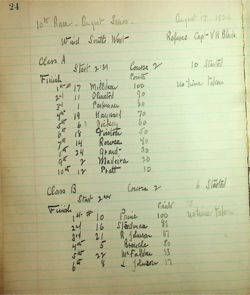 24
10th Race - August Series - August 17, 1932
Wind South West Referee Capt VH Black
Class A
Start 2-34 Course 2 10 Started
Finish Points no time taken
1st # 17 Milliken 100
2nd 11 Olmsted 90
3rd 1 80
4th 19 Hayward 70
5th 6 60
6th 18 50
7th 14 Rowse 40
8th 24 Grant 30
9th 2 Madeira 20
10th 12 Pratt 10
Class B
Start 2-44 Course 2 6 Started
Finish Points no time taken
1st # 10 Paine 100
2nd 16 Stedman 83
3rd 21 R Johnson 67
4th 5 50
5th 22 McFadden 33
6th 8 L Johnson 17